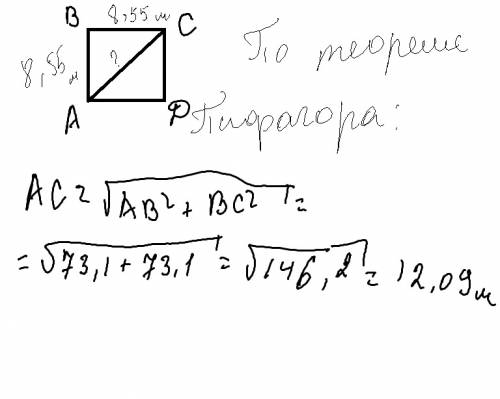 B 8,55 м C
8,55 м ?
A D
По теореме
Пифагора:
AC = √AB² + BC² =
= √73,1 + 73,1 = √146,2 = 12,09 м